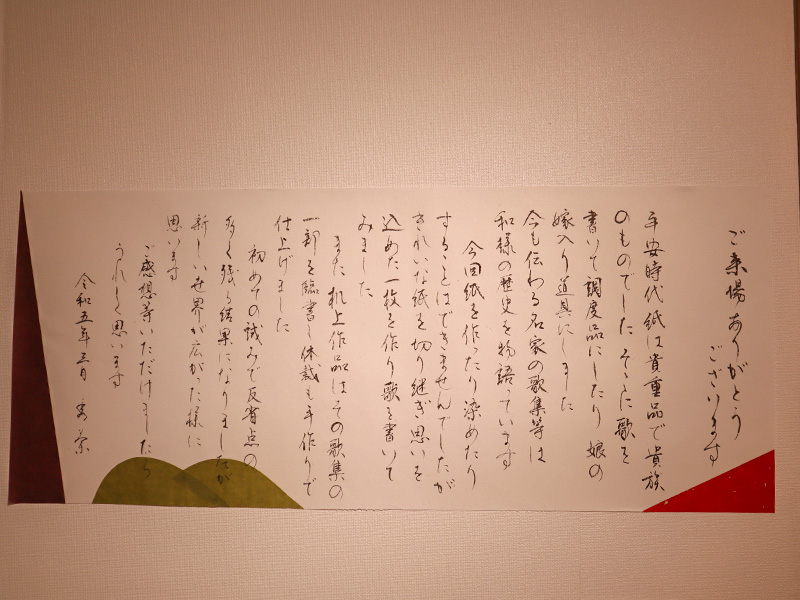 ご来場ありがとう
ございます
平安時代紙は貴重品で貴族
のものでした そこに歌を
書いて調度品にしたり 娘の
嫁入り道具にしました
今も伝わる名家の歌集等は
和様の歴史を物語っています
今回紙を作ったり染めたり
することはできませんでしたが
きれいな紙を切り継ぎ思いを
込めた一枚を作り歌を書いて
みました
また 机上作品はその歌集の
一部を臨書し体裁も手作りで
仕上げました
初めての試みで反省点の
多く残る結果になりましたが
新しい世界が広がった様に
思います
ご感想等いただけましたら
うれしく思います
令和五年三月